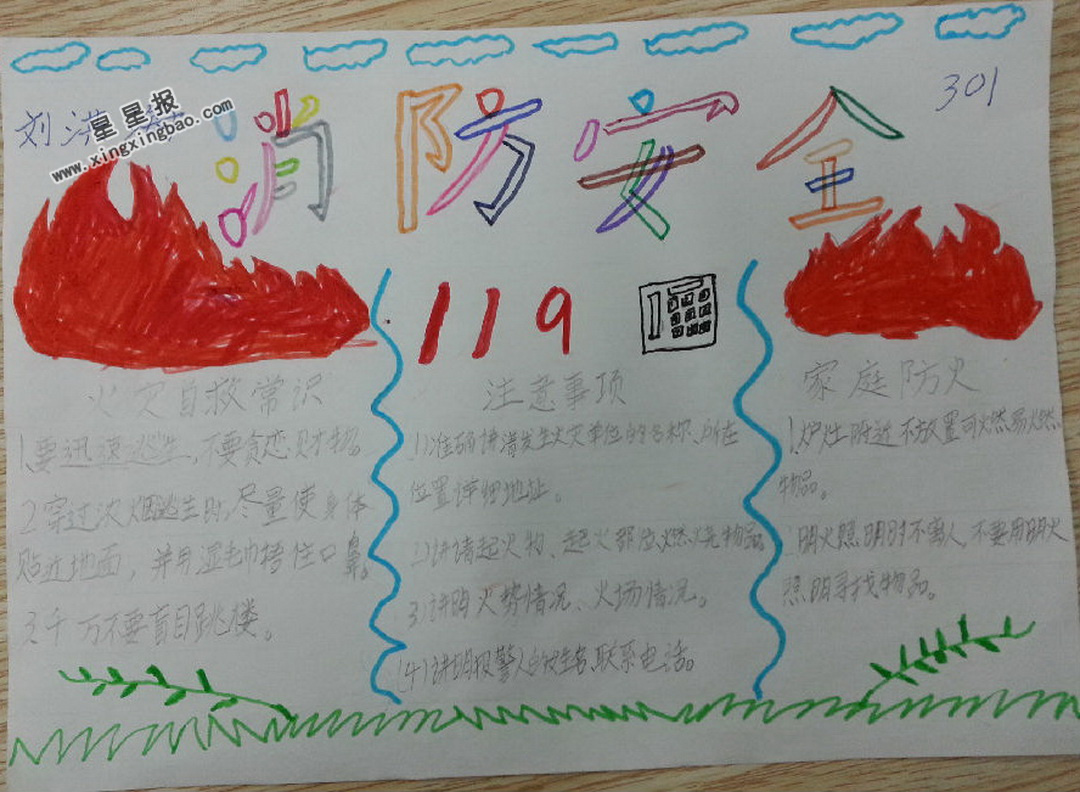 301
刘洪
星星报
www.xingxingbao.com
消防安全
119
火灾自救常识
1.要迅速逃生,不要贪恋财物。
2.穿过浓烟逃生时,尽量使身体
贴近地面,并用湿毛巾捂住口鼻。
3.千万不要盲目跳楼。
注意事项
(1)准确讲清发生火灾单位的名称、所在
位置详细地址。
(2)讲清起火物、起火部位燃烧物品。
(3)讲明火势情况、火场情况。
(4)讲明报警人的姓名联系电话。
家庭防火
1.炉灶附近不放置可燃易燃
物品。
明火照明时不离人,不要用明火
照明寻找物品。